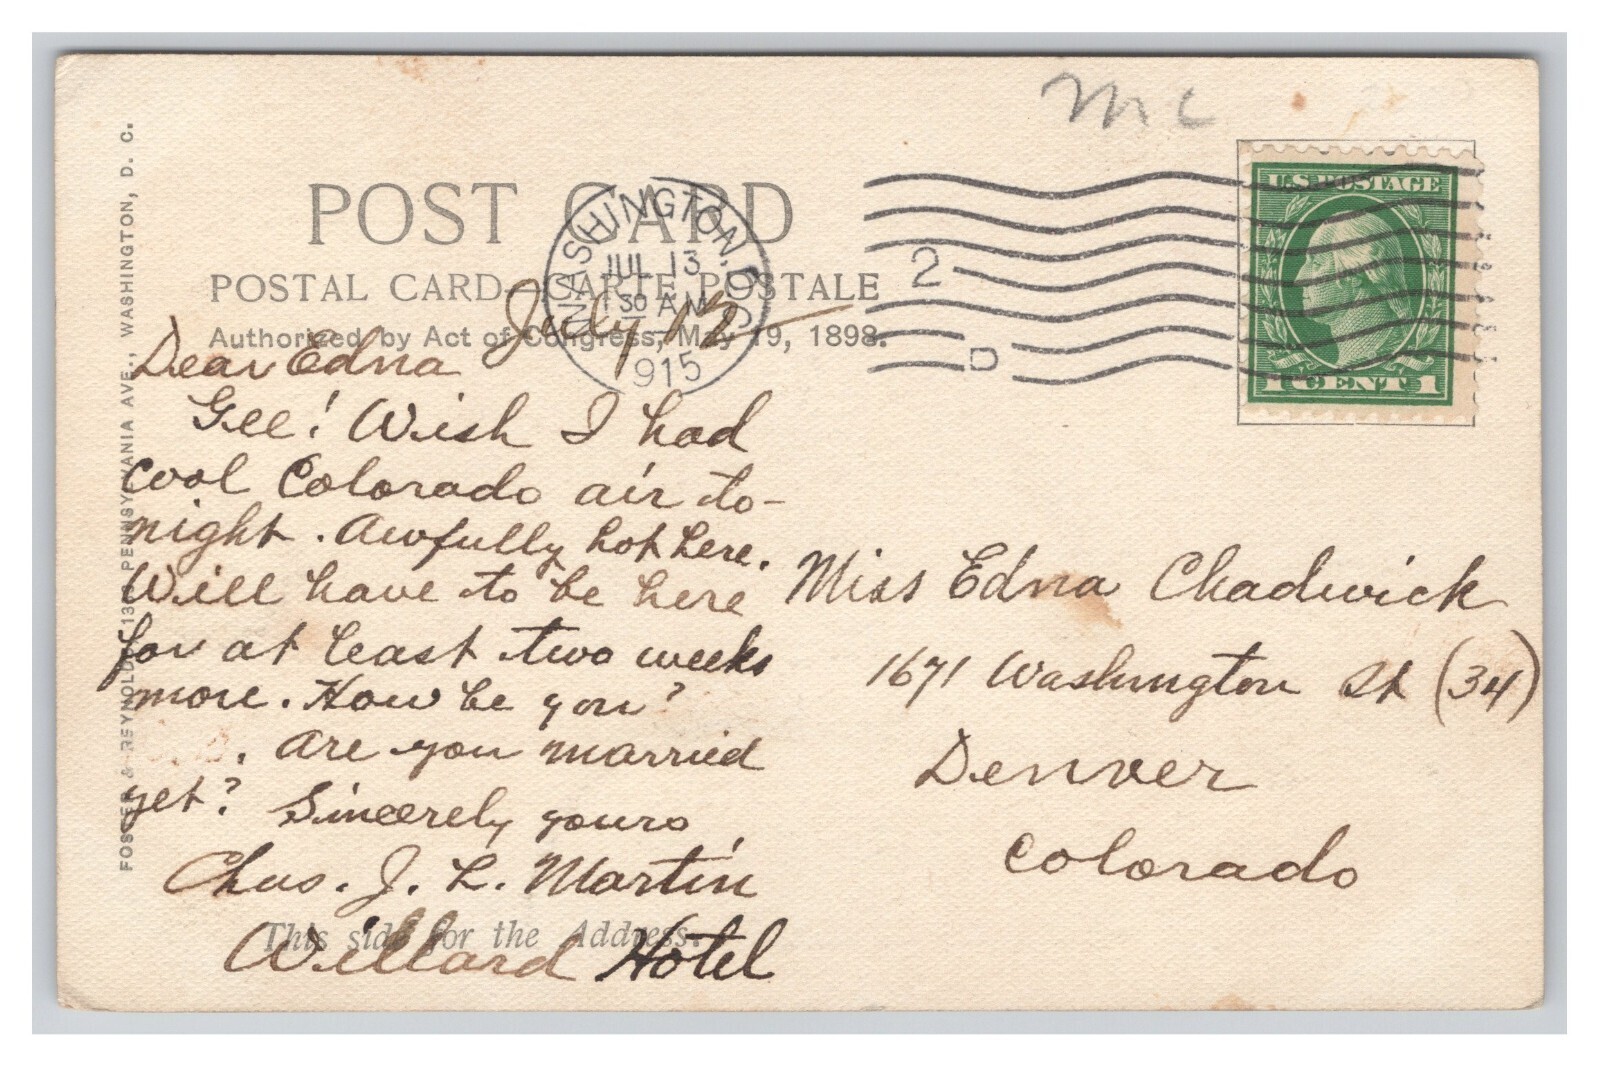 mc
U.S. POSTAGE
1 CENT 1
POST CARD
WASHINGTON, D.C.
JUL 13
1 30 AM
1915
2
D
POSTAL CARD—CARTE POSTALE
Authorized by Act of Congress, May 19, 1898.
FOSTER & REYNOLDS, PENNSYLVANIA AVE., WASHINGTON, D. C.
July 12
Dear Edna
Gee! Wish I had
cool Colorado air to-
night. Awfully hot here.
Will have to be here
for at least two weeks
more. How be you?
Are you married
yet? Sincerely yours,
Chas. J. L. Martin
Willard Hotel
This side for the Address.
Miss Edna Chadwick
1671 Washington St (34)
Denver
Colorado